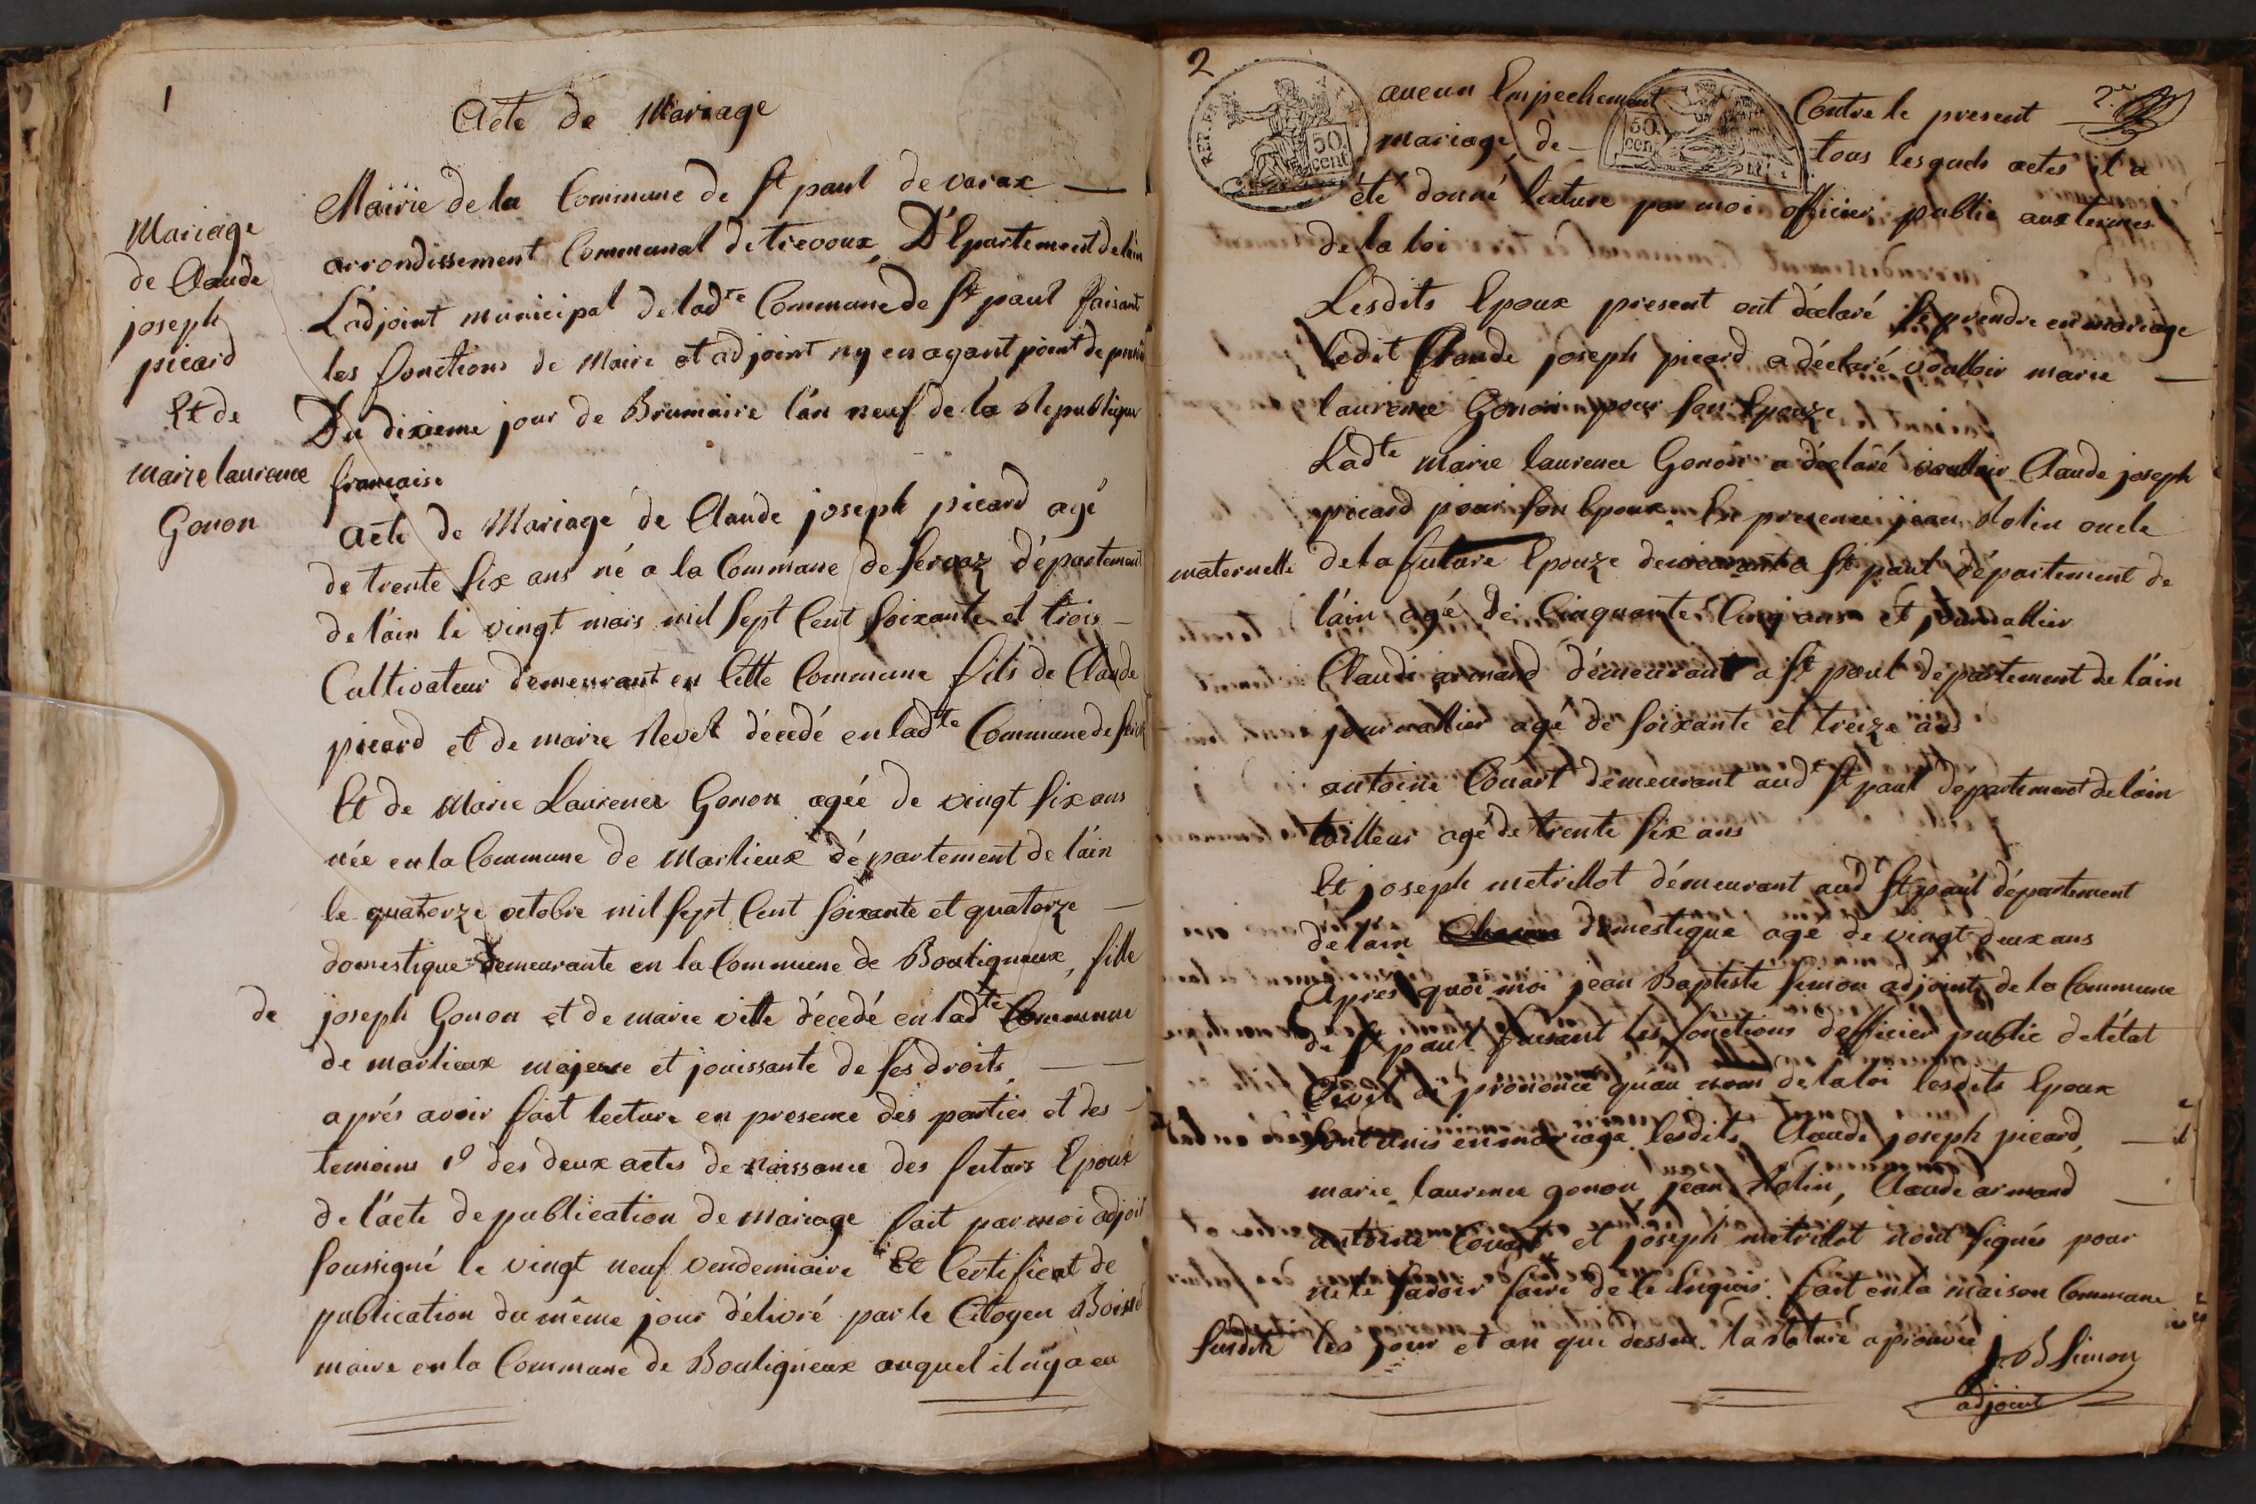 1
Acte de Mariage
Mairie de la Commune de St paul de varax
arrondissement Communal de trevoux, D'Epartement de l'ain
L'adjoint municipal de ladte Commune de St paul faisant
les fonctions de Maire et adjoint ny en ayant point de
Du dixieme jour de Brumaire l'an neuf de la Republique
francaise
Mariage
de Claude
joseph
picard
Et de
marie laurence
Gonon
Acte de Mariage de Claude joseph picard agé
de trente six ans né a la Commune de Servaz département
de l'ain le vingt mars mil sept Cent soixante et trois
Cultivateur demeurant en Cette Commune fils de Claude
picard et de marie Revel décedé en ladte Commune de
Et de Marie Laurence Gonon agée de vingt six ans
née en la Commune de Marlieux département de l'ain
le quatorze octobre mil sept Cent soixante et quatorze
domestique demeurante en la Commune de Bouligneux, fille
de joseph Gonon et de marie vitte décedé en ladte Commune
de marlieux majeure et jouissante de ses droits,
aprés avoir fait lecture en presence des parties et des
temoins 1º des deux actes de naissance des futurs Epoux
de l'acte de publication de mariage fait par moi adjoit
soussigné le vingt neuf vendemiaire Et Certificat de
publication du même jour délivré par le Citoyen
maire en la Commune de Bouligneux auquel il ny a eu
2
REP. FRA
50 cent
50 cen
2e
aucun Empechement Contre le present
mariage, de tous lesquels actes il a
été donné lecture par moi officier public aux termes
de la loi
Lesdits Epoux present ont déclaré se prendre en mariage
ledit Claude joseph picard a déclaré voulloir marie
laurence Gonon pour son Epouze
Ladte marie laurence Gonon a déclaré voulloir Claude joseph
picard pour son Epoux. En presence jean Rolin oncle
maternelle de la future Epouze demeurant a St paul département de
l'ain agé de Cinquante Cinq ans Et journallier
Claude armand démeurant a St paul département de l'ain
journallier agé de soixante et treize ans
antoine Couart demeurant audt St paul département de l'ain
tailleur agé de trente six ans
Et joseph metrillot démeurant audt St paul département
de l'ain domestique agé de vingt deux ans
Apres quoi moi jean Baptiste simon adjoint de la Commune
de St paul faisant les fonctions d'officier public de l'état
Civil ai prononcé qu'au nom de la loi lesdits Epoux
sont unis en mariage lesdits Claude joseph picard,
marie laurence gonon, jean Rolin, Claude armand
antoine Couart et joseph metrillot n'ont signés pour
ne le savoir faire de le Enquis. fait en la maison Commune
susdite les jour et an que dessus. la rature aprouvée
J. B Simon
adjoint